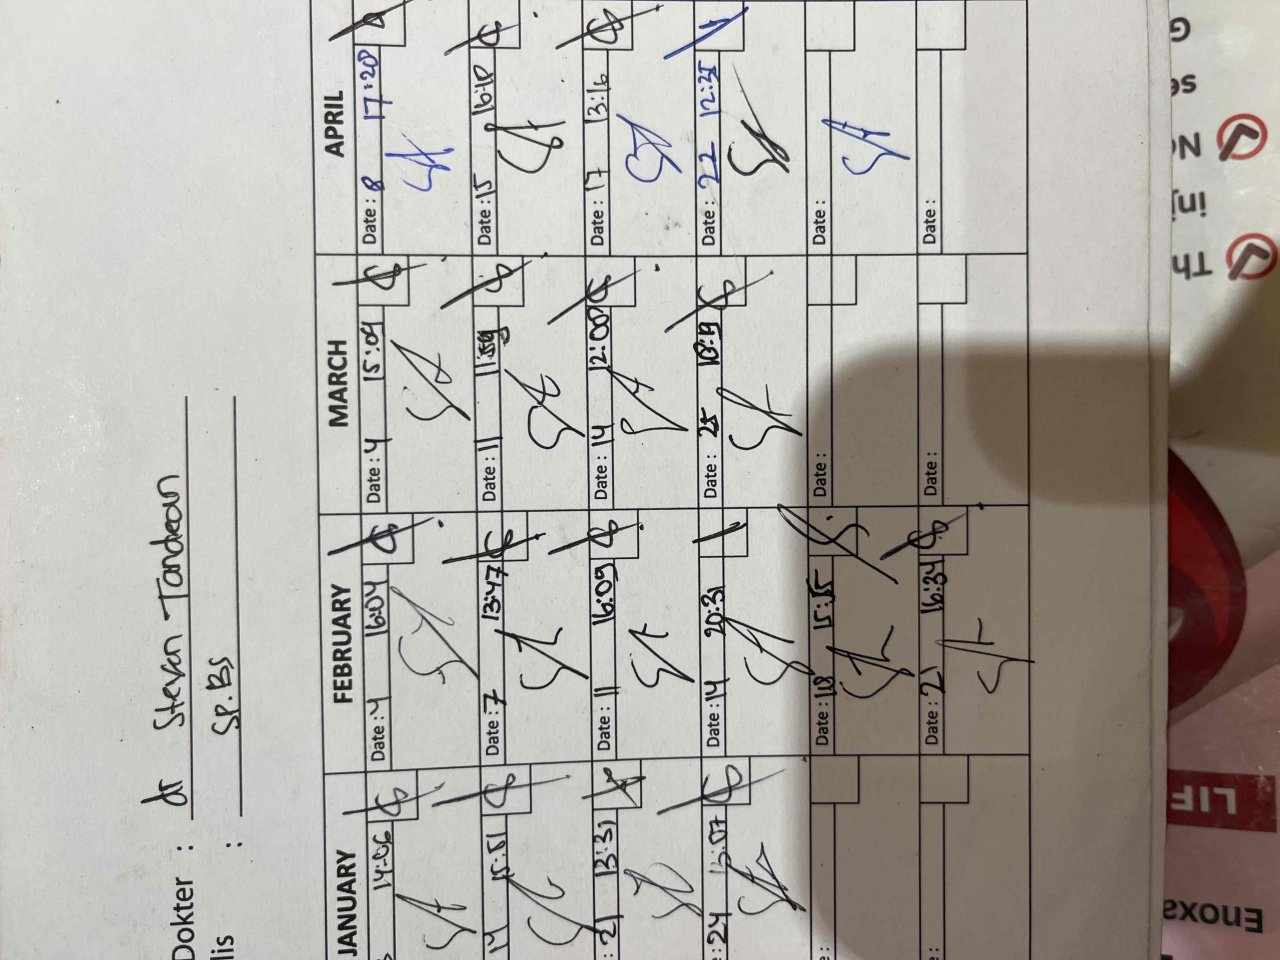 Dokter : dr Steven Tandean
lis : Sp.BS
JANUARY FEBRUARY MARCH APRIL
14:06
Date : 4 16:04
Date : 4 15:09
Date : 8 17:20
14 15:51
Date : 7 13:47
Date : 11 11:59
Date : 15 16:18
: 21 13:31
Date : 11 16:09
Date : 14 12:00
Date : 17 13:16
: 24
Date : 14 20:31
Date : 25
Date : 22
:
Date : 18
Date :
Date :
:
Date : 21 16:34
Date :
Date :
G
se
No
inj
Th
LIF
Enoxa